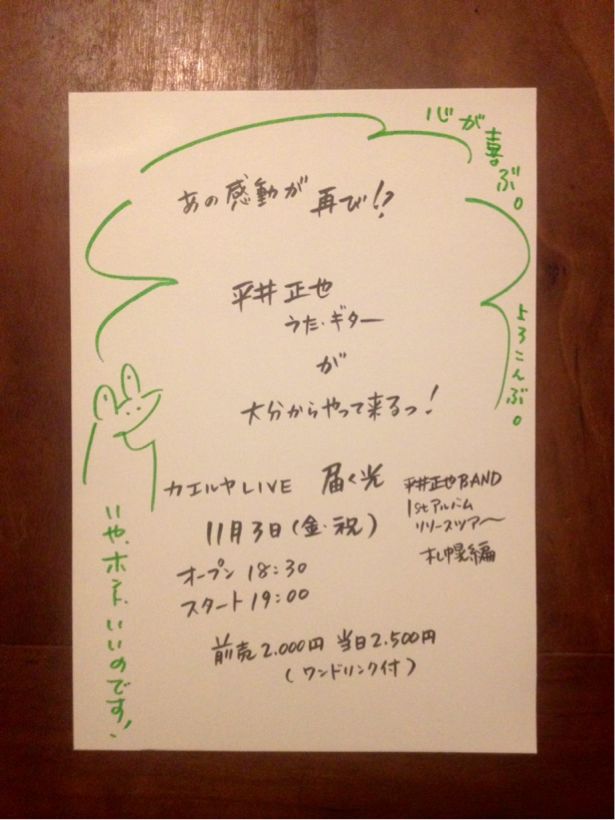 心が喜ぶ。
よろこんぶ。
あの感動が再び!?
平井正也
うた・ギター
が
大分からやって来るっ!
カエルヤLIVE 届く光
平井正也BAND
1stアルバム
リリースツアー
札幌編
11月3日(金・祝)
オープン18:30
スタート19:00
前売2.000円 当日2.500円
(ワンドリンク付)
いや、ホント、いいのです!